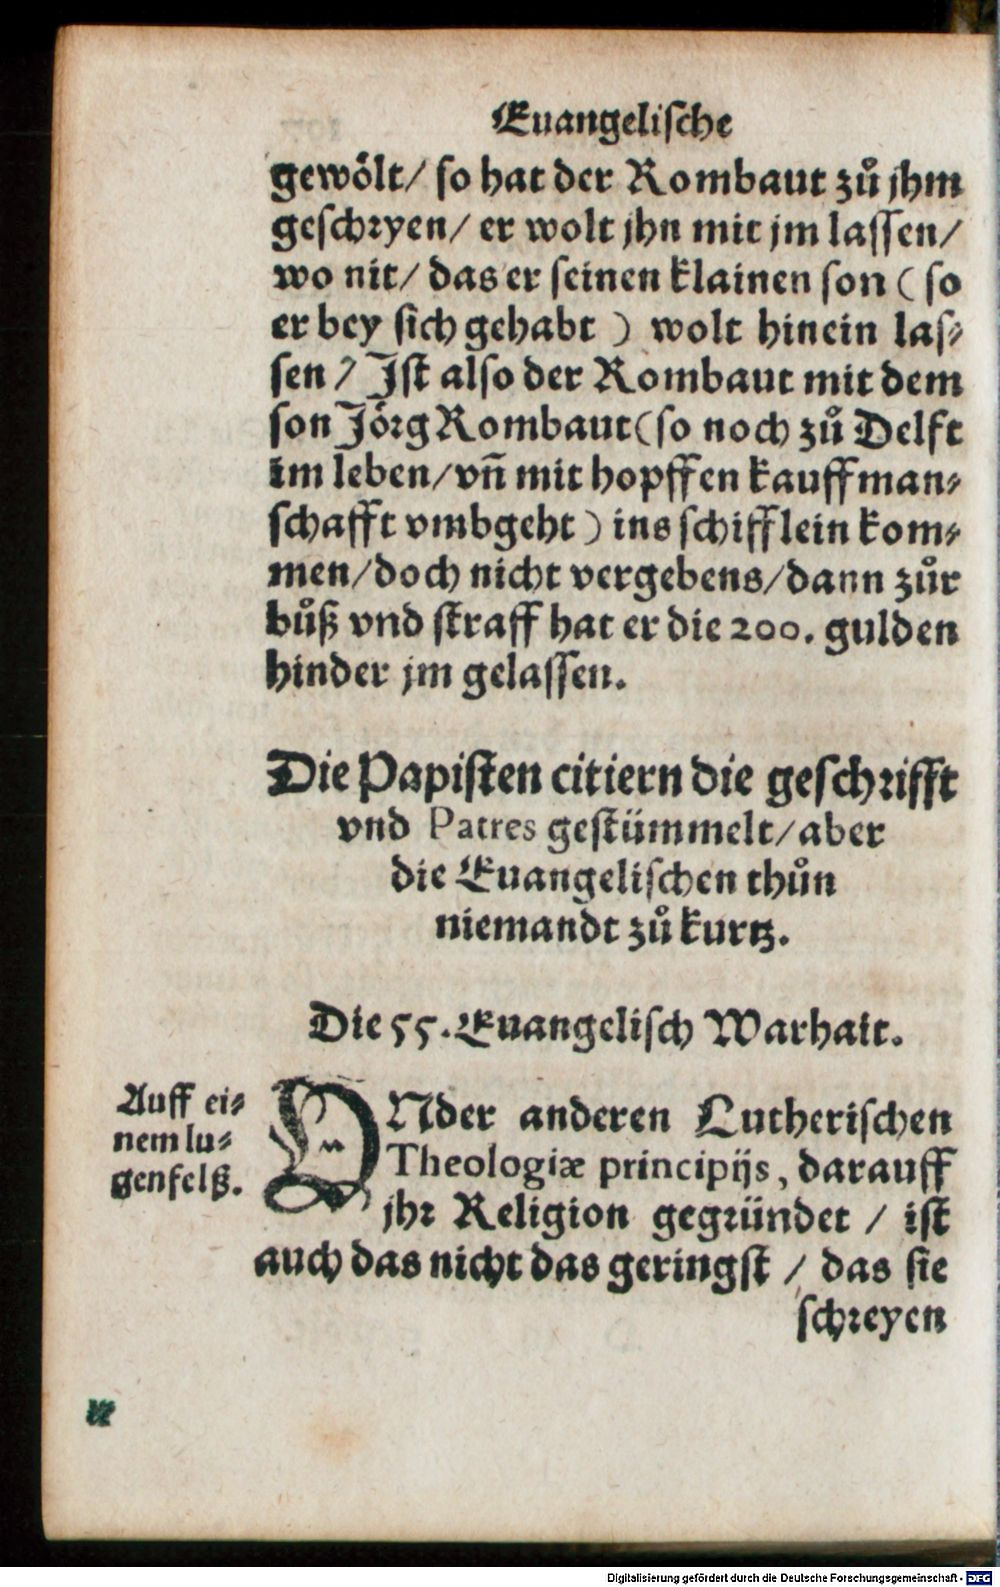 Euangelische
gewölt/ so hat der Rombaut zů jhm
geschryen/ er wolt jhn mit jm lassen/
wo nit/ das er seinen klainen son ( so
er bey sich gehabt ) wolt hinein las-
sen / Ist also der Rombaut mit dem
son Jörg Rombaut (so noch zů Delft
im leben/ vñ mit hopffen kauffman-
schafft vmbgeht ) ins schifflein kom-
men/ doch nicht vergebens/ dann zůr
bůß vnd straff hat er die 200. gulden
hinder jm gelassen.
Die Papisten citiern die geschrifft
vnd Patres gestümmelt/ aber
die Euangelischen thůn
niemandt zů kurtz.
Die 55. Euangelisch Warhait.
Auff ei-
nem lu-
genfelß.
VNder anderen Lutherischen
Theologiæ principijs, darauff
jhr Religion gegründet / ist
auch das nicht das geringst / das sie
schreyen
Digitalisierung gefördert durch die Deutsche Forschungsgemeinschaft - DFG